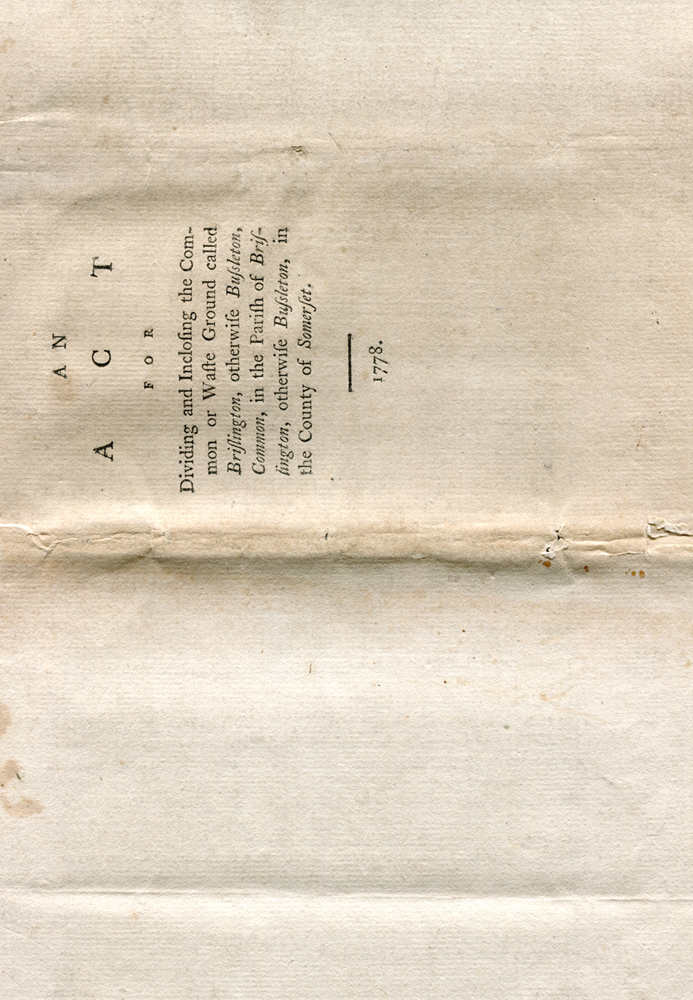 AN
ACT
FOR
Dividing and Incloſing the Com-
mon or Waſte Ground called
Briſlington, otherwiſe Buſsleton,
Common, in the Pariſh of Briſ-
lington, otherwiſe Buſsleton, in
the County of Somerſet.
1778.